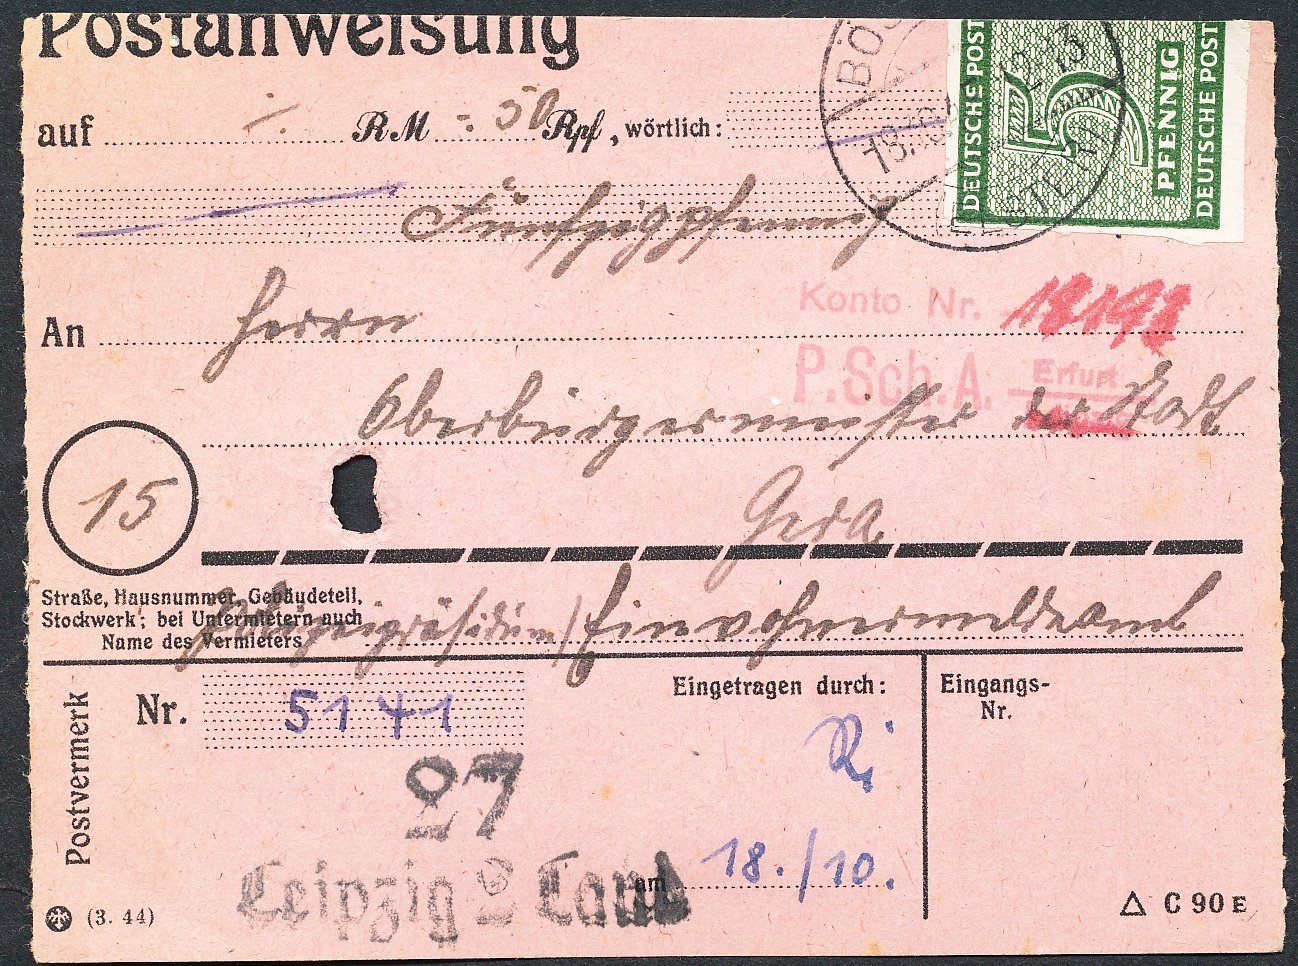 Postanweisung
auf -. RM -. 50 Rpf, wörtlich:
Fünfzigpfennig
DEUTSCHE POST
5 PFENNIG
DEUTSCHE POST
An Herrn
Konto Nr. 18198
P.Sch.A. Erfurt
Oberbürgermeister der Stadt
15
Gera
Straße, Hausnummer, Gebäudeteil,
Stockwerk; bei Untermietern auch
Name des Vermieters
Polizeipräsidium/Einwohnermeldeamt
Postvermerk
Nr. 5141
Eingetragen durch:
Ri
Eingangs-
Nr.
27
Leipzig 2 Land
am 18./10.
(3. 44)
C 90 E